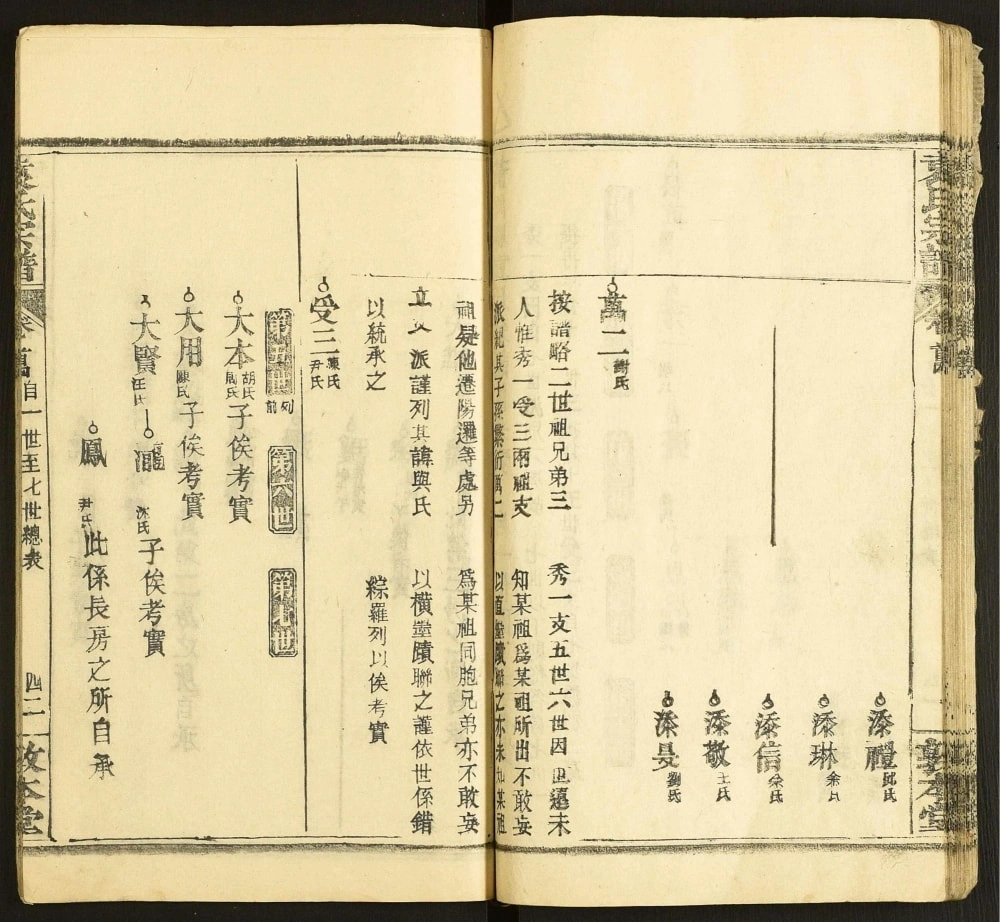 袁氏宗譜
敦本堂
添禮 邱氏
添琳 余氏
添信 余氏
添敬 王氏
添旻 劉氏
萬二 謝氏
按譜略二世祖兄弟三
人惟秀一受三兩祖支
派紀其子孫繁衍萬二
祖疑他遷陽邏等處另
立 派謹列其諱與氏
以統承之
秀一支五世六世因世遠未
知某祖為某祖所出不敢妄
以直 聯之亦未知某祖
為某祖同胞兄弟亦不敢妄
以橫 聯之謹依世係錯
綜羅列以俟考實
受三 陳氏 尹氏
第五世 前列
第六世
第七世
大本 胡氏 周氏 子俟考實
大用 陳氏 子俟考實
大賢 汪氏
沈氏 子俟考實
鳳 尹氏 此係長房之所自承
袁氏宗譜
自一世至七世總表
四二
敦本堂